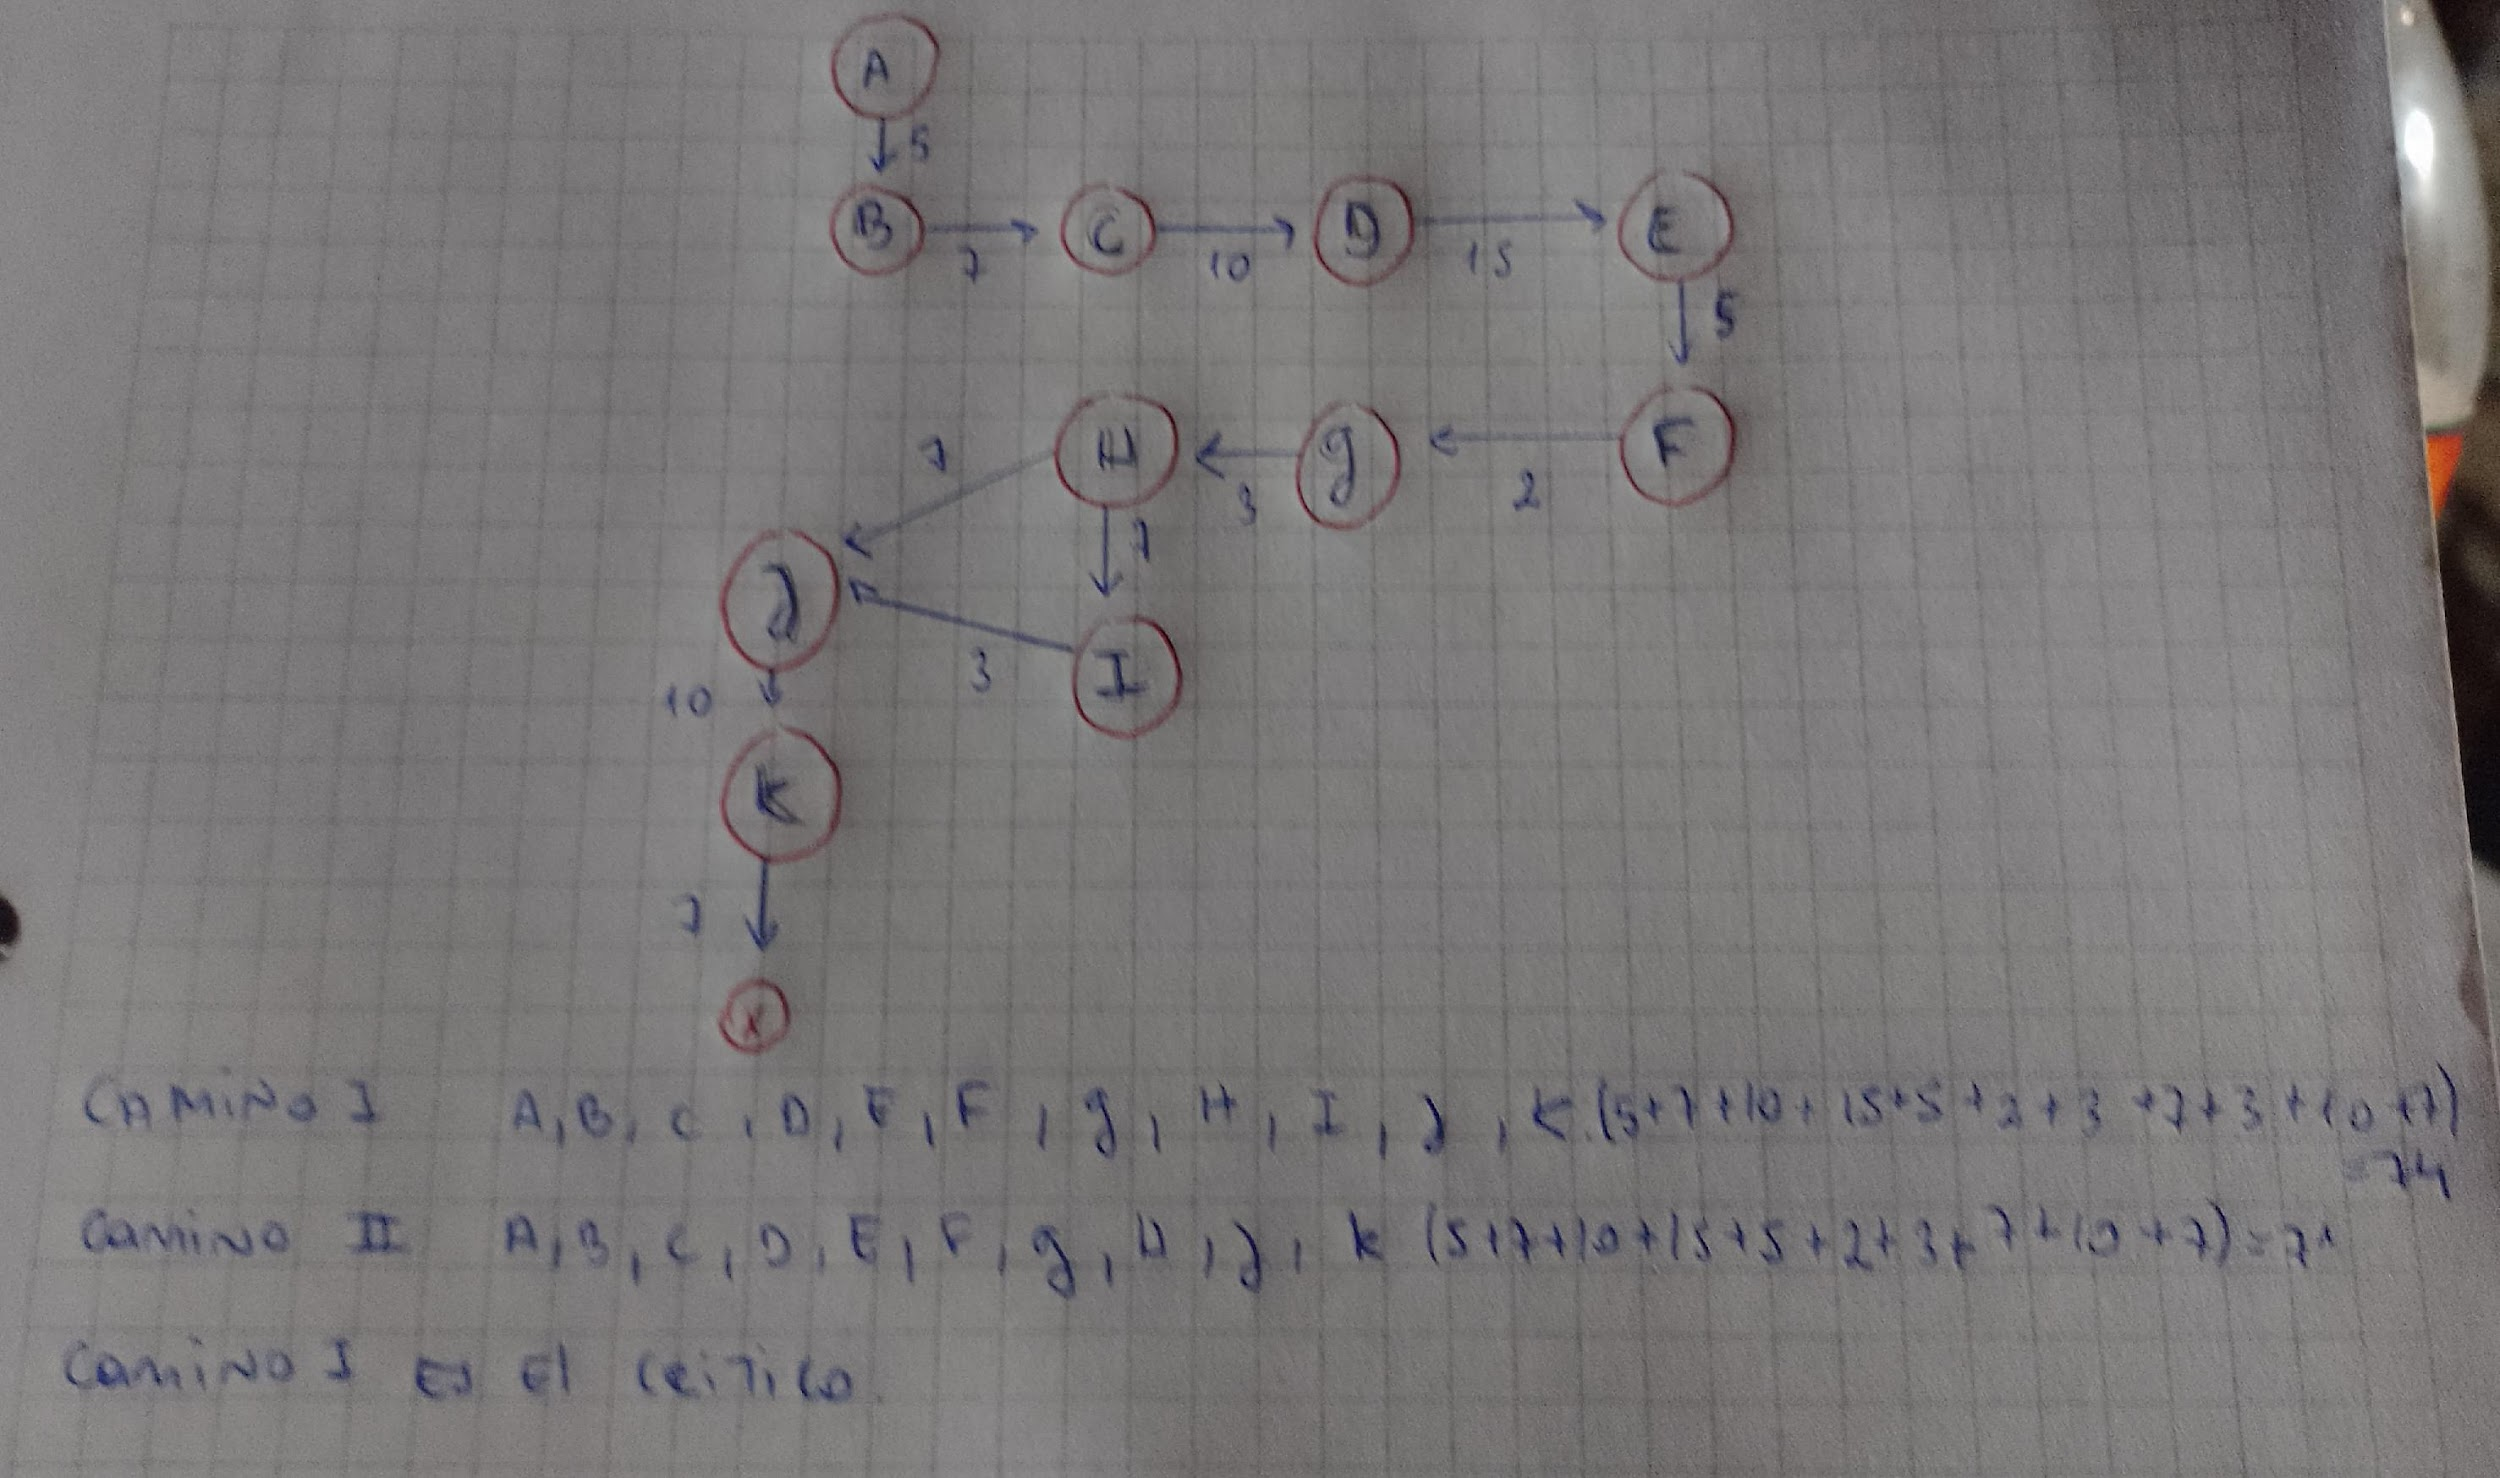 A
5
B 7 C 10 D 15 E
5
7 H 3 g 2 F
7
J
3 I
10
K
7
X
CAMINO I A, B, C, D, E, F, g, H, I, J, K (5+7+10+15+5+2+3+7+3+10+7)
=74
CAMINO II A, B, C, D, E, F, g, H, J, K (5+7+10+15+5+2+3+7+10+7)=71
CAMINO I ES El CRITICO